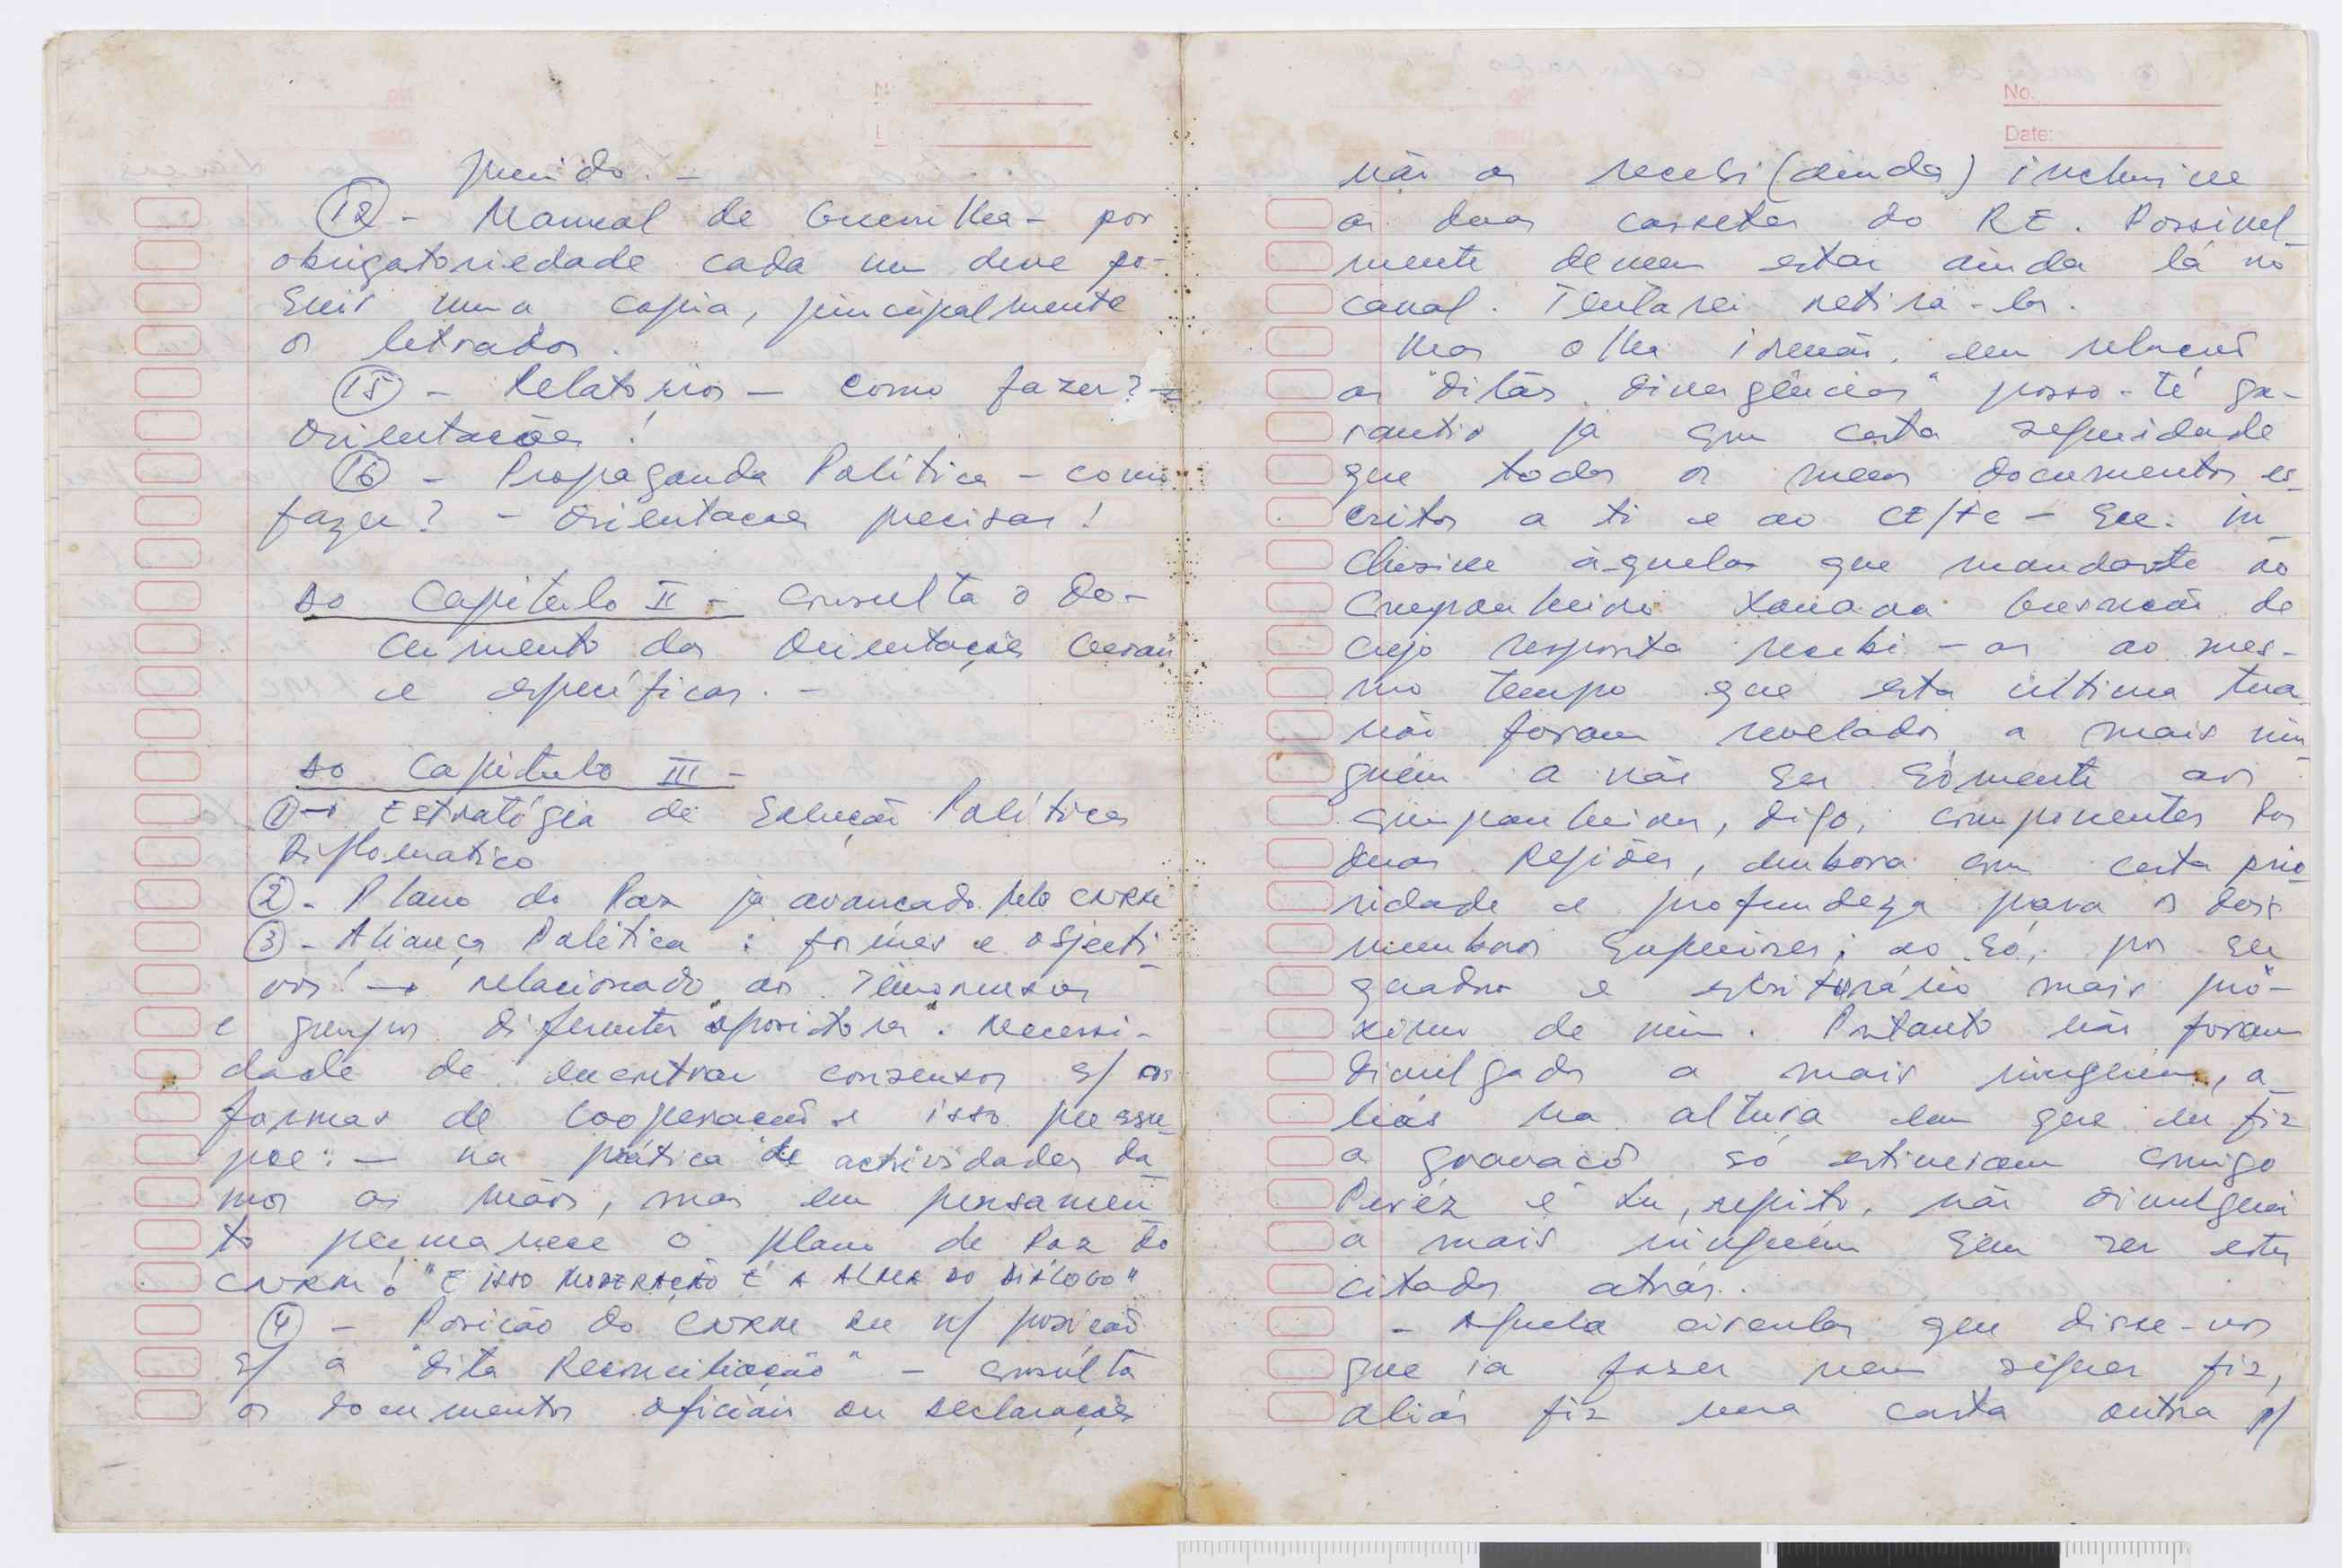 punido. -
(12) - Manual de Guerrilha - por
obrigatoriedade cada um deve po-
suir uma copia, principalmente
os letrados.
(15) - Relatorios - como fazer? -
Orientações!
(16) - Propaganda Política - como
fazer? - Orientações precisas!
Do Capitulo II - Consulta o Do-
cumento das Orientações Gerais
e específicas. -
Do Capitulo III -
(1) → Estratégia de Solução Política
Diplomatico
(2) - Plano de Paz já avançado pelo CNRM
(3) - Aliança Política : formas e objecti-
vos! → relacionado aos Timorenses
e grupos diferentes "opositores". Necessi-
dade de encontrar consensos s/ as
formas de cooperação e isso pressu-
poe: - na prática de actividades da-
mos as mãos, mas em pensamen-
to permanece o plano de Paz do
CNRM! "E ISSO MODERAÇÃO É A ALMA DO DIÁLOGO"
(4) - Posição do CNRM ou n/ posição
s/ a "dita Reconciliação" - consulta
os documentos oficiais ou declarações
No.
Date:
não os recebi (ainda) inclusive
as duas cassetes do RE. Possivel-
mente devem estar ainda lá no
canal. Tentarei retirá-los.
Mas olha irmão, em relação
as "ditas divergências" posso-te ga-
rantir já com certa seguridade
que todos os meus documentos es-
critos a ti e ao CE/FC - Sul: in-
clusive àquelas que mandaste ao
Companheiro Xanana Gusmão de
cujo resposta recebi-as ao mes-
mo tempo que esta ultima tua
não foram revelados a mais nin-
guém a não ser sómente aos
companheiros, digo, componentes das
duas Regiões, embora com certa prio-
ridade e profundeza para os dois
membros superiores; ao Só, por ser
quadro e mais pró-
ximo de mim. Portanto não foram
divulgados a mais ninguém, a-
liás na altura em que eu fiz
a gravação só estiveram comigo
Peréz e Lu, repito, não divulguei
a mais ninguém sem ser estes
citados atrás.
- Aquela circular que disse-vos
que ia fazer nem siquer fiz,
aliás fiz uma carta outra p/